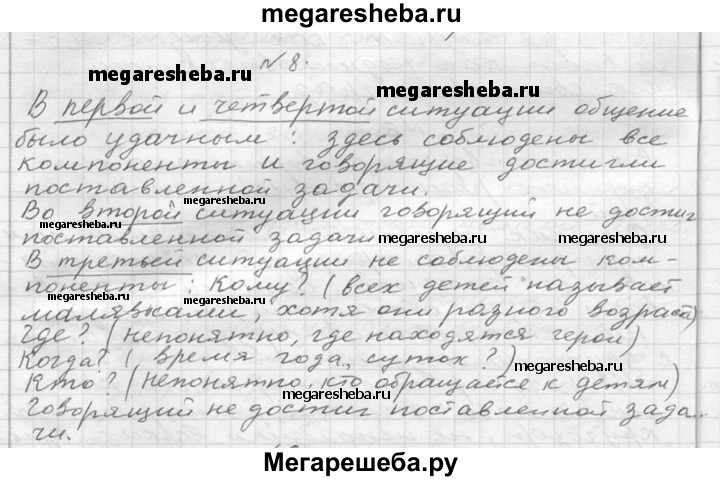 megaresheba.ru
N 8.
megaresheba.ru
megaresheba.ru
В первой и четвертой ситуации общение
было удачным: здесь соблюдены все
компоненты и говорящие достигли
поставленной задачи.
megaresheba.ru
Во второй ситуации говорящий не достиг
поставленной задачи
megaresheba.ru
megaresheba.ru
В третьей ситуации не соблюдены ком-
поненты: Кому? (всех детей называет
малявками, хотя они разного возраста)
megaresheba.ru
Где? (непонятно, где находятся герои)
Когда? (время года, суток?)
megaresheba.ru
megaresheba.ru
Кто? (непонятно, кто обращается к детям)
Говорящий не достиг поставленной зада-
чи.
Мегарешеба.ру